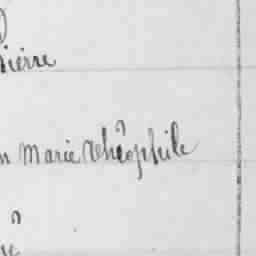 Pierre
n Marie Théophile